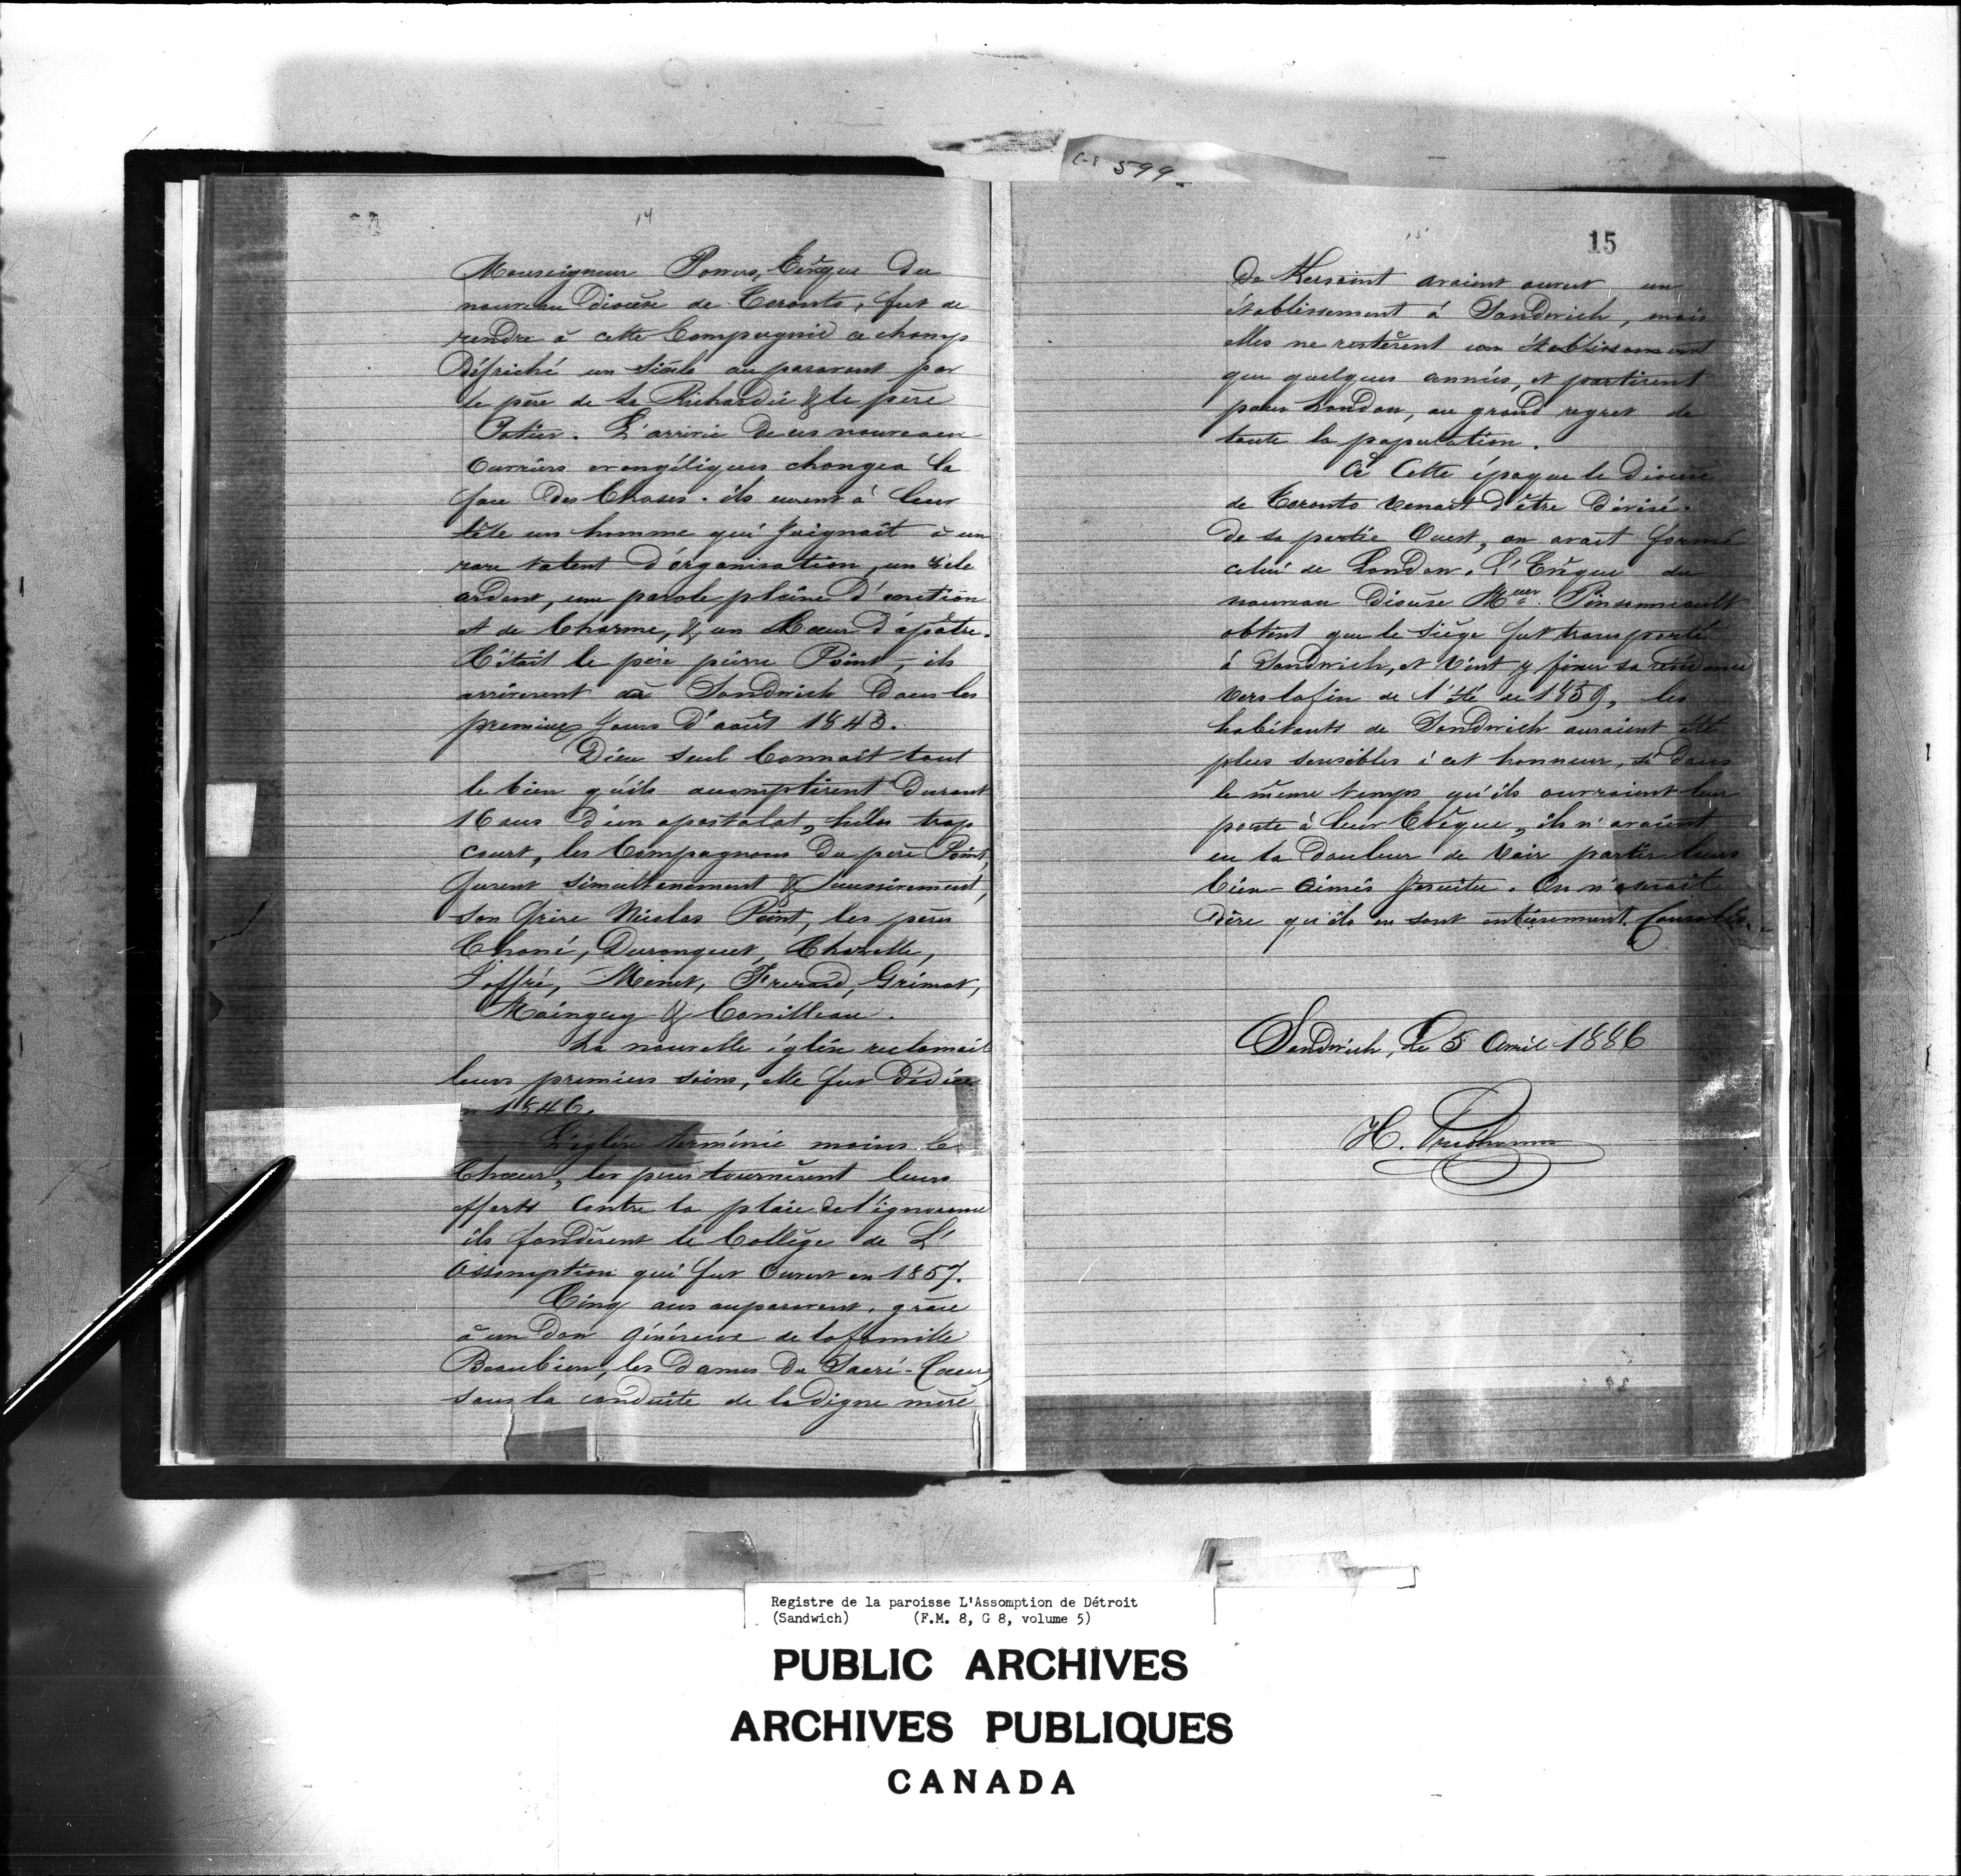 C-8 599
14
Monseigneur Powers, Evêque du
nouveau Diocèse de Toronto, fut de
rendre à cette Compagnie ce champ
Défriché un Siècle auparavent par
le père de la Richardie & le père
Potier. L'arrivée de ces nouveaux
Ouvriers evangéliques changea la
face des Choses. ils eurent à leur
tête un homme qui joignait à un
rare talent d'organisation, un zèle
ardent, une parole pleine d'onction
et de Charme, & un Cœur d'apôtre.
C'était le père pierre Point, ils
arrivèrent à Sandwich dans les
premiers jours d'août 1843.
Dieu seul Connait tout
le bien qu'ils accomplirent Durant
16 ans d'un apostolat, hélas trop
court, les Compagnons du père Point,
furent simultanement & Successivement,
son frère Nicolas Point, les pères
Choné, Duranquet, Chazelle,
Jaffré, Menet, Ferrard, Grimot,
Mainguy & Conilleau.
La nouvelle église reclamait
leurs premiers soins, elle fut Dédiée
1846.
L'église terminée moins le
Chœur, les pères tournèrent leurs
efforts Contre la plaie de l'ignorance
ils fondèrent le Collège de L'
Assomption qui fut Ouvert en 1857.
Cinq ans auparavent, grâce
à un Don généreux de la famille
Beaubien, les Dames Du Sacré-Cœur,
sous la conduite de la Digne mère
15
15
De Kersaint avaient ouvert un
établissement à Sandwich, mais
elles ne restèrent con établissement
que quelques années, et partirent
pour London, au grand regret de
toute la population.
A Cette époque le Diocèse
de Toronto Venait d'être Divisé.
De sa partie Ouest, on avait formé
celui de London. L'Evêque du
nouveau Diocèse Mgr. Pinsonneault
obtint que le Siège fut transporté
à Sandwich, et Vint y fixer sa residence
Vers la fin de l'été de 1859, les
habitants de Sandwich auraient été
plus sensibles à cet honneur, si Dans
le même temps qu'ils ouvraient leur
porte à leur Evêque, ils n'avaient
eu la Douleur de Voir partir leurs
bien-aimés Jesuites. On n'oserait
Dire qu'ils en sont entièrement Consolés.
Sandwich, Le 5 Avril 1886
H. Prudhomme
Registre de la paroisse L'Assomption de Détroit
(Sandwich) (F.M. 8, G 8, volume 5)
PUBLIC ARCHIVES
ARCHIVES PUBLIQUES
CANADA